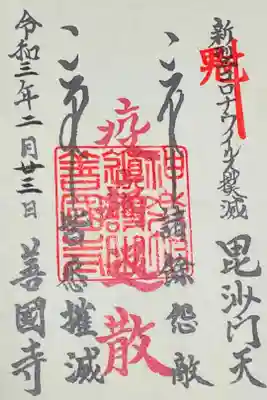 新型コロナウイルス撃滅
毘沙門天
諸餘怨敵
疫
退散
皆悉摧滅
令和三年二月廿三日
善國寺
神楽坂
鎮護山
善國寺